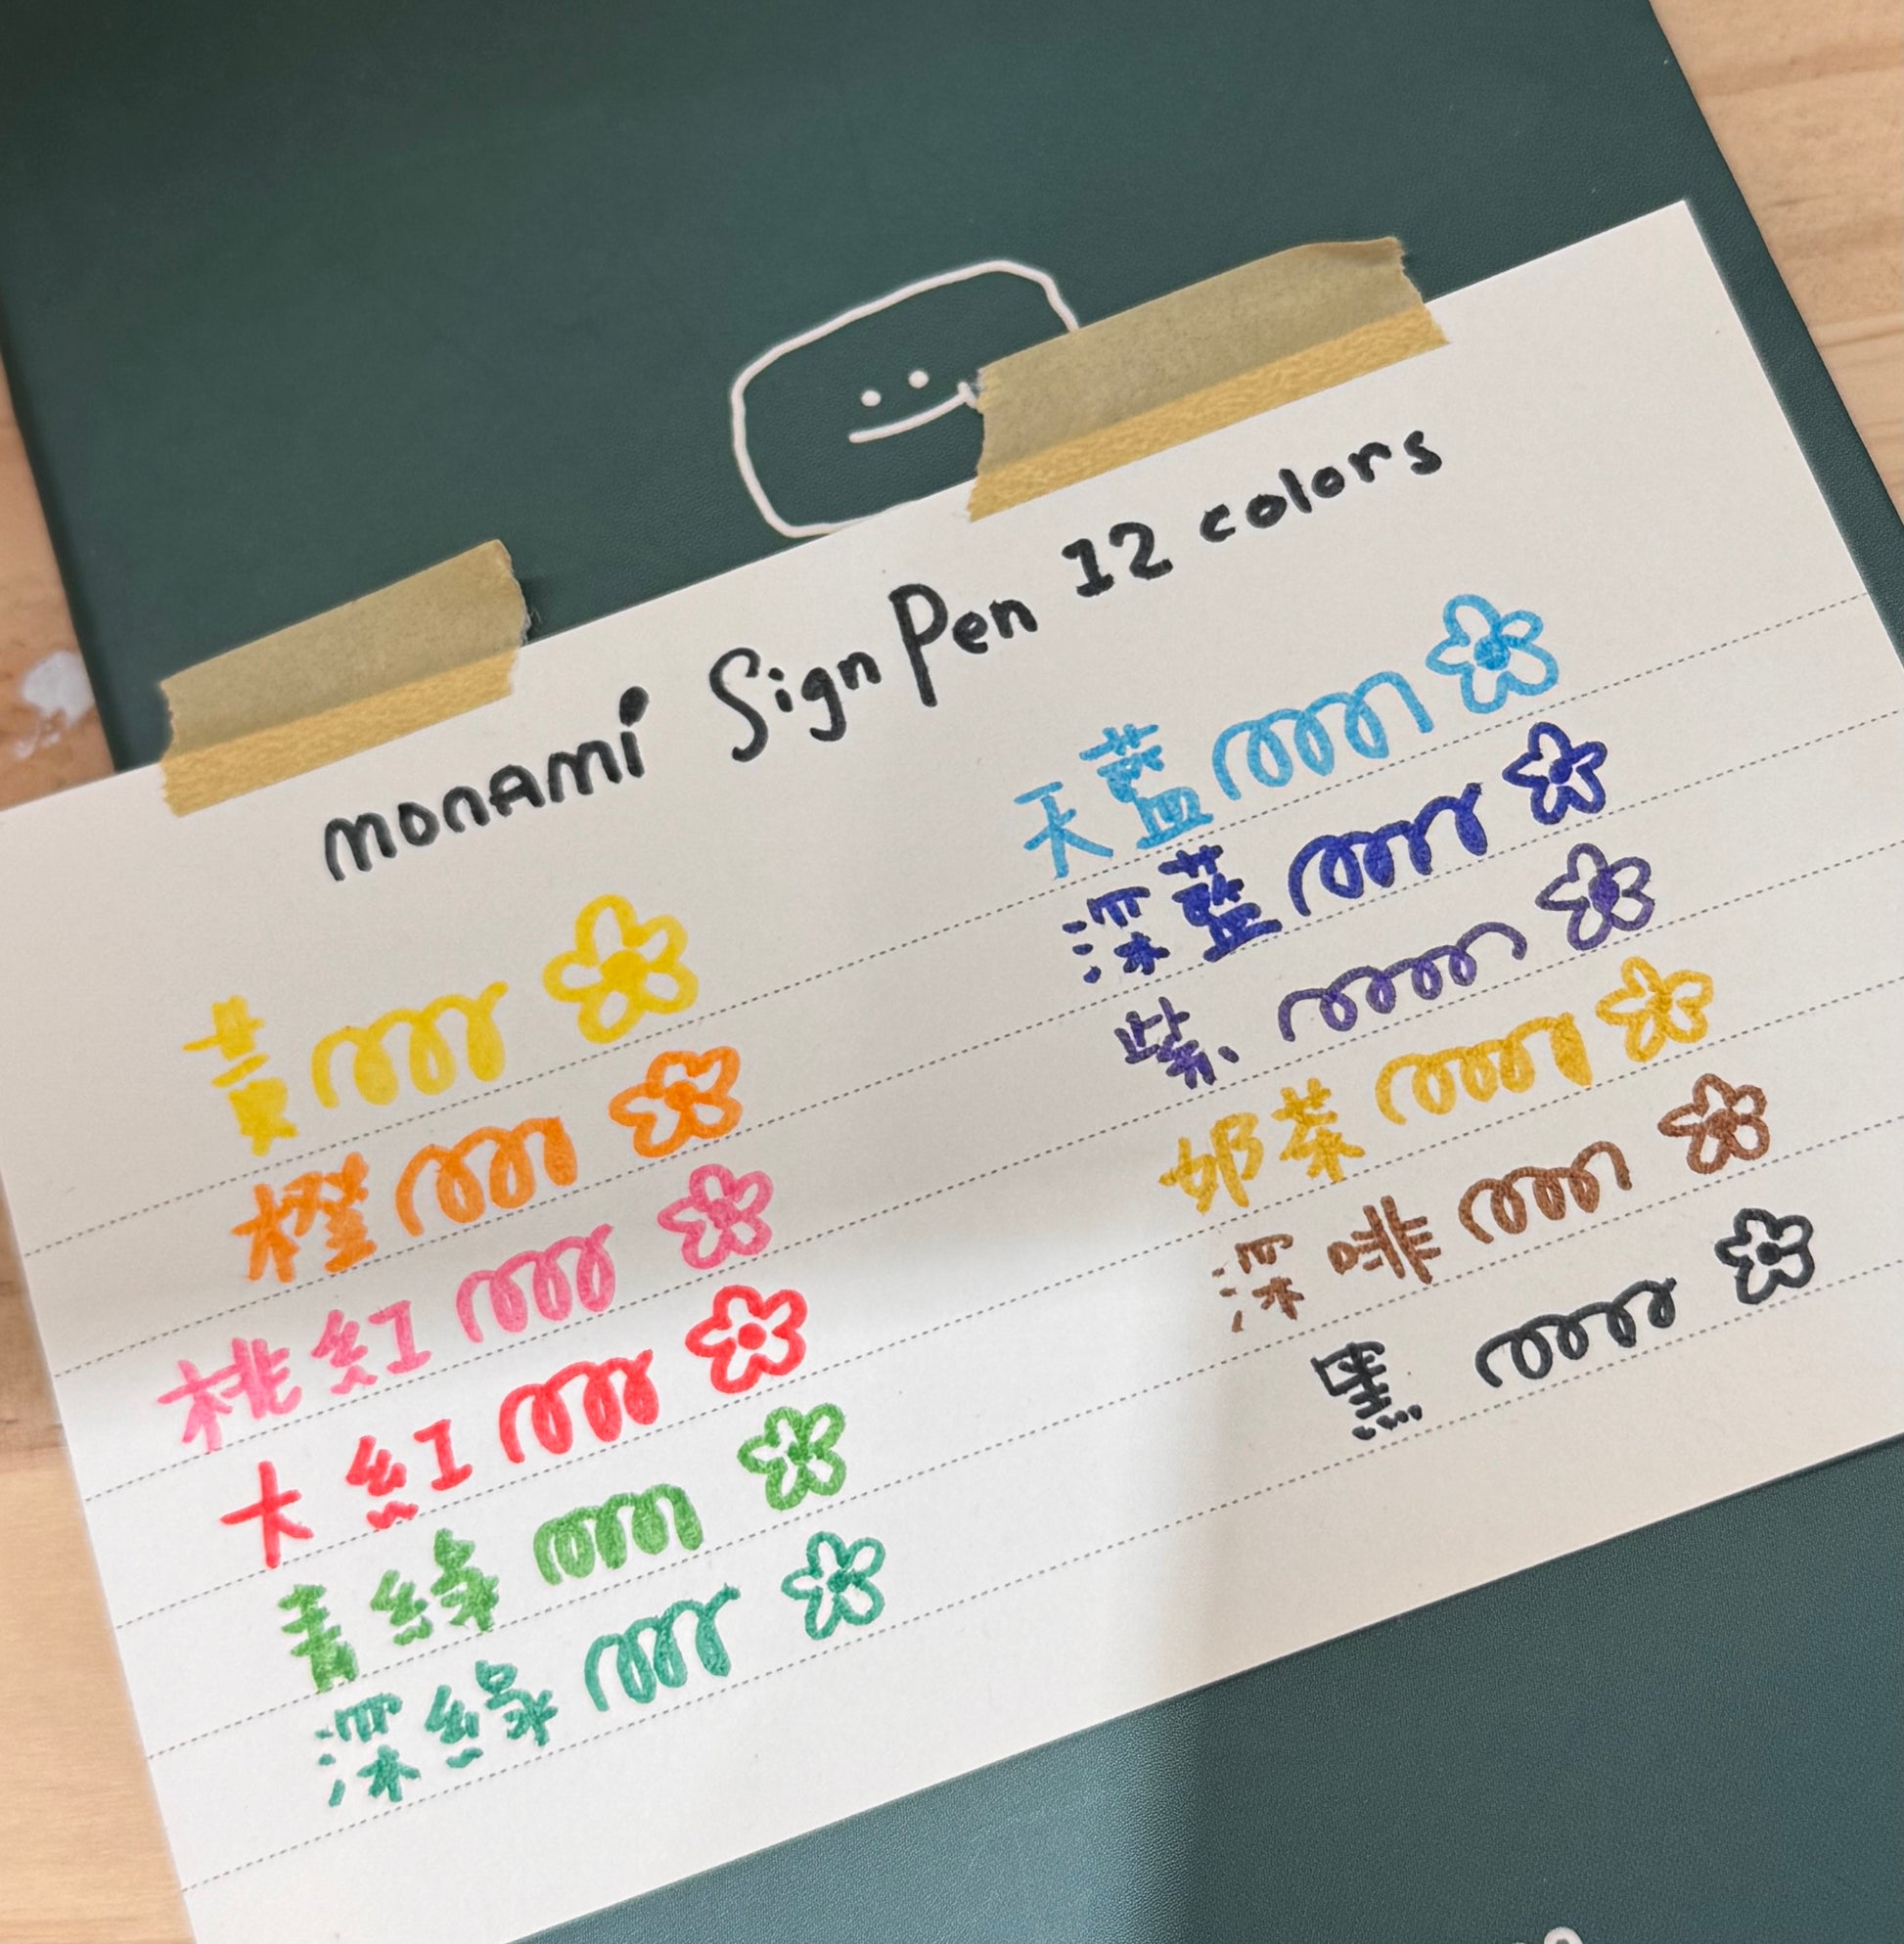 monami Sign Pen 12 colors
黃
橙
桃紅
大紅
青綠
深綠
天藍
深藍
紫
奶茶
深啡
黑